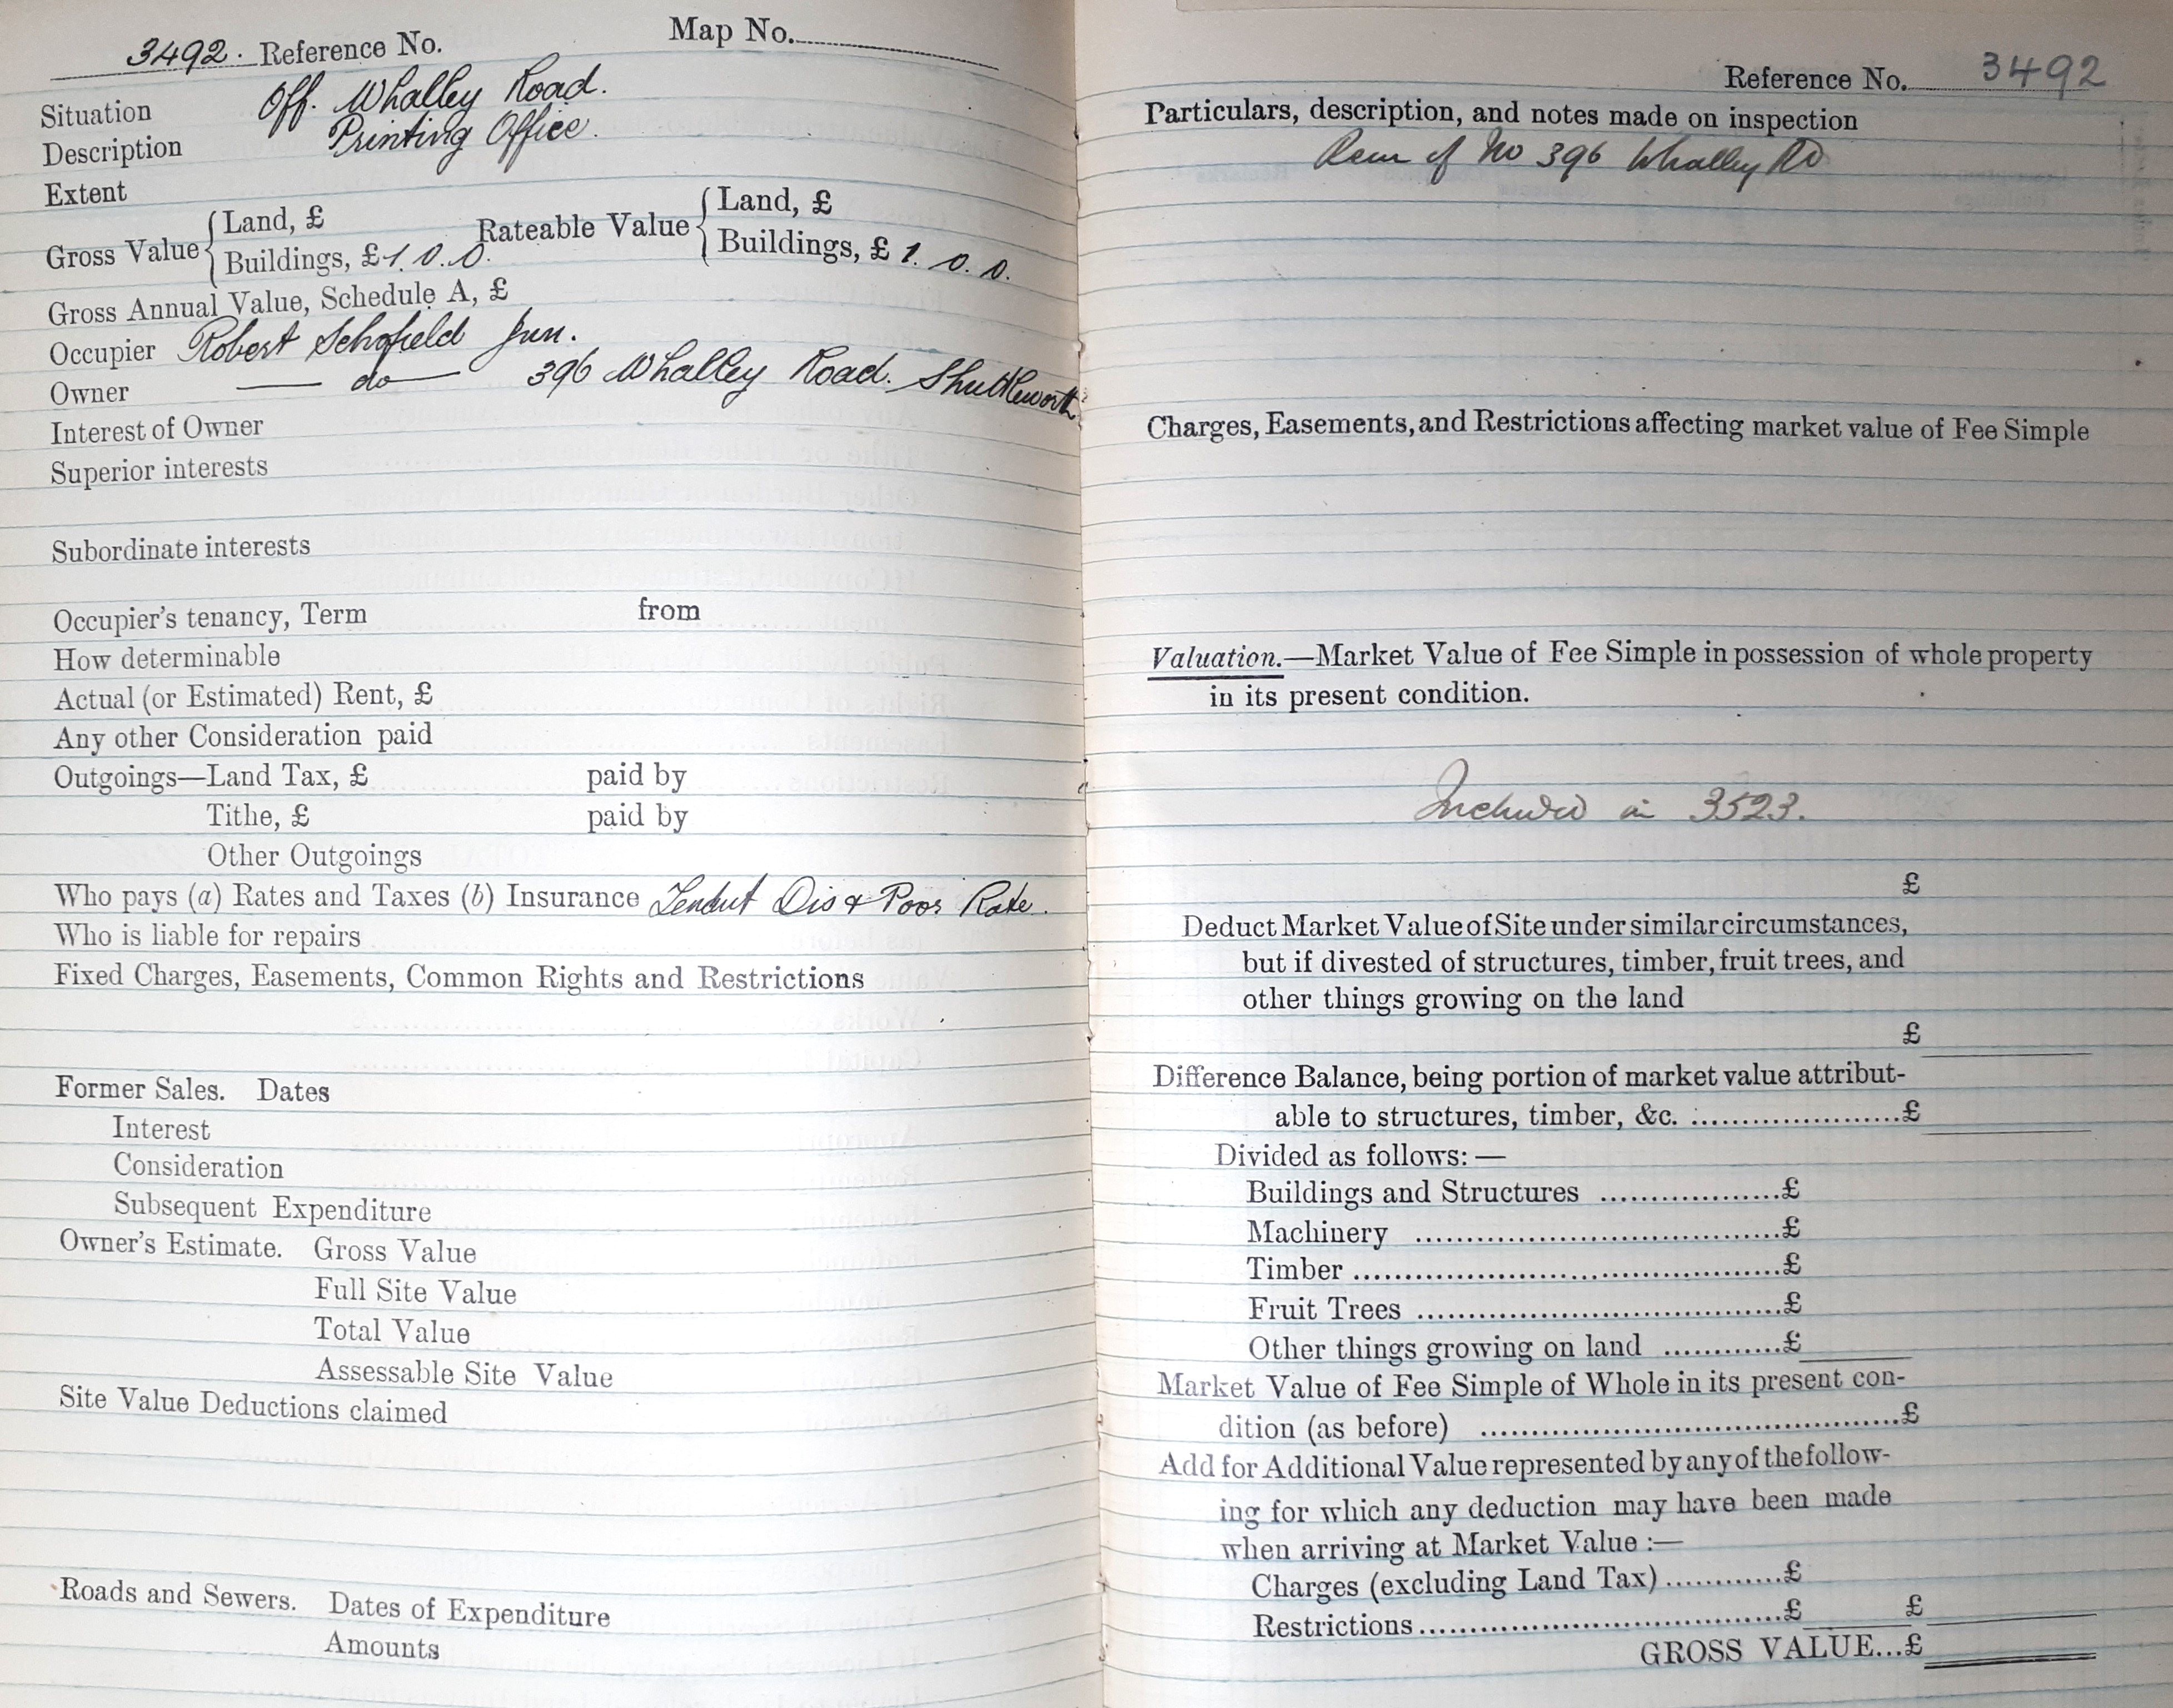 3492. Reference No. Map No.
Situation Off. Whalley Road.
Description Printing Office.
Extent
Gross Value { Land, £ Rateable Value { Land, £
Buildings, £ 1. 0. 0. Buildings, £ 1. 0. 0.
Gross Annual Value, Schedule A, £
Occupier Robert Schofield Jun.
Owner — do — 396 Whalley Road. Shuttleworth
Interest of Owner
Superior interests
Subordinate interests
Occupier's tenancy, Term from
How determinable
Actual (or Estimated) Rent, £
Any other Consideration paid
Outgoings—Land Tax, £ paid by
Tithe, £ paid by
Other Outgoings
Who pays (a) Rates and Taxes (b) Insurance Dis & Poor Rate.
Who is liable for repairs
Fixed Charges, Easements, Common Rights and Restrictions
Former Sales. Dates
Interest
Consideration
Subsequent Expenditure
Owner's Estimate. Gross Value
Full Site Value
Total Value
Assessable Site Value
Site Value Deductions claimed
Roads and Sewers. Dates of Expenditure
Amounts
Reference No. 3492
Particulars, description, and notes made on inspection
Rear of No 396 Whalley Rd
Charges, Easements, and Restrictions affecting market value of Fee Simple
Valuation.—Market Value of Fee Simple in possession of whole property
in its present condition.
Included in 3523.
£
Deduct Market Value of Site under similar circumstances,
but if divested of structures, timber, fruit trees, and
other things growing on the land
£
Difference Balance, being portion of market value attribut-
able to structures, timber, &c. ....................£
Divided as follows: —
Buildings and Structures ..................£
Machinery ....................................£
Timber ..........................................£
Fruit Trees ....................................£
Other things growing on land ............£
Market Value of Fee Simple of Whole in its present con-
dition (as before) ..........................................£
Add for Additional Value represented by any of the follow-
ing for which any deduction may have been made
when arriving at Market Value :—
Charges (excluding Land Tax) ............£
Restrictions ....................................£ £
GROSS VALUE...£